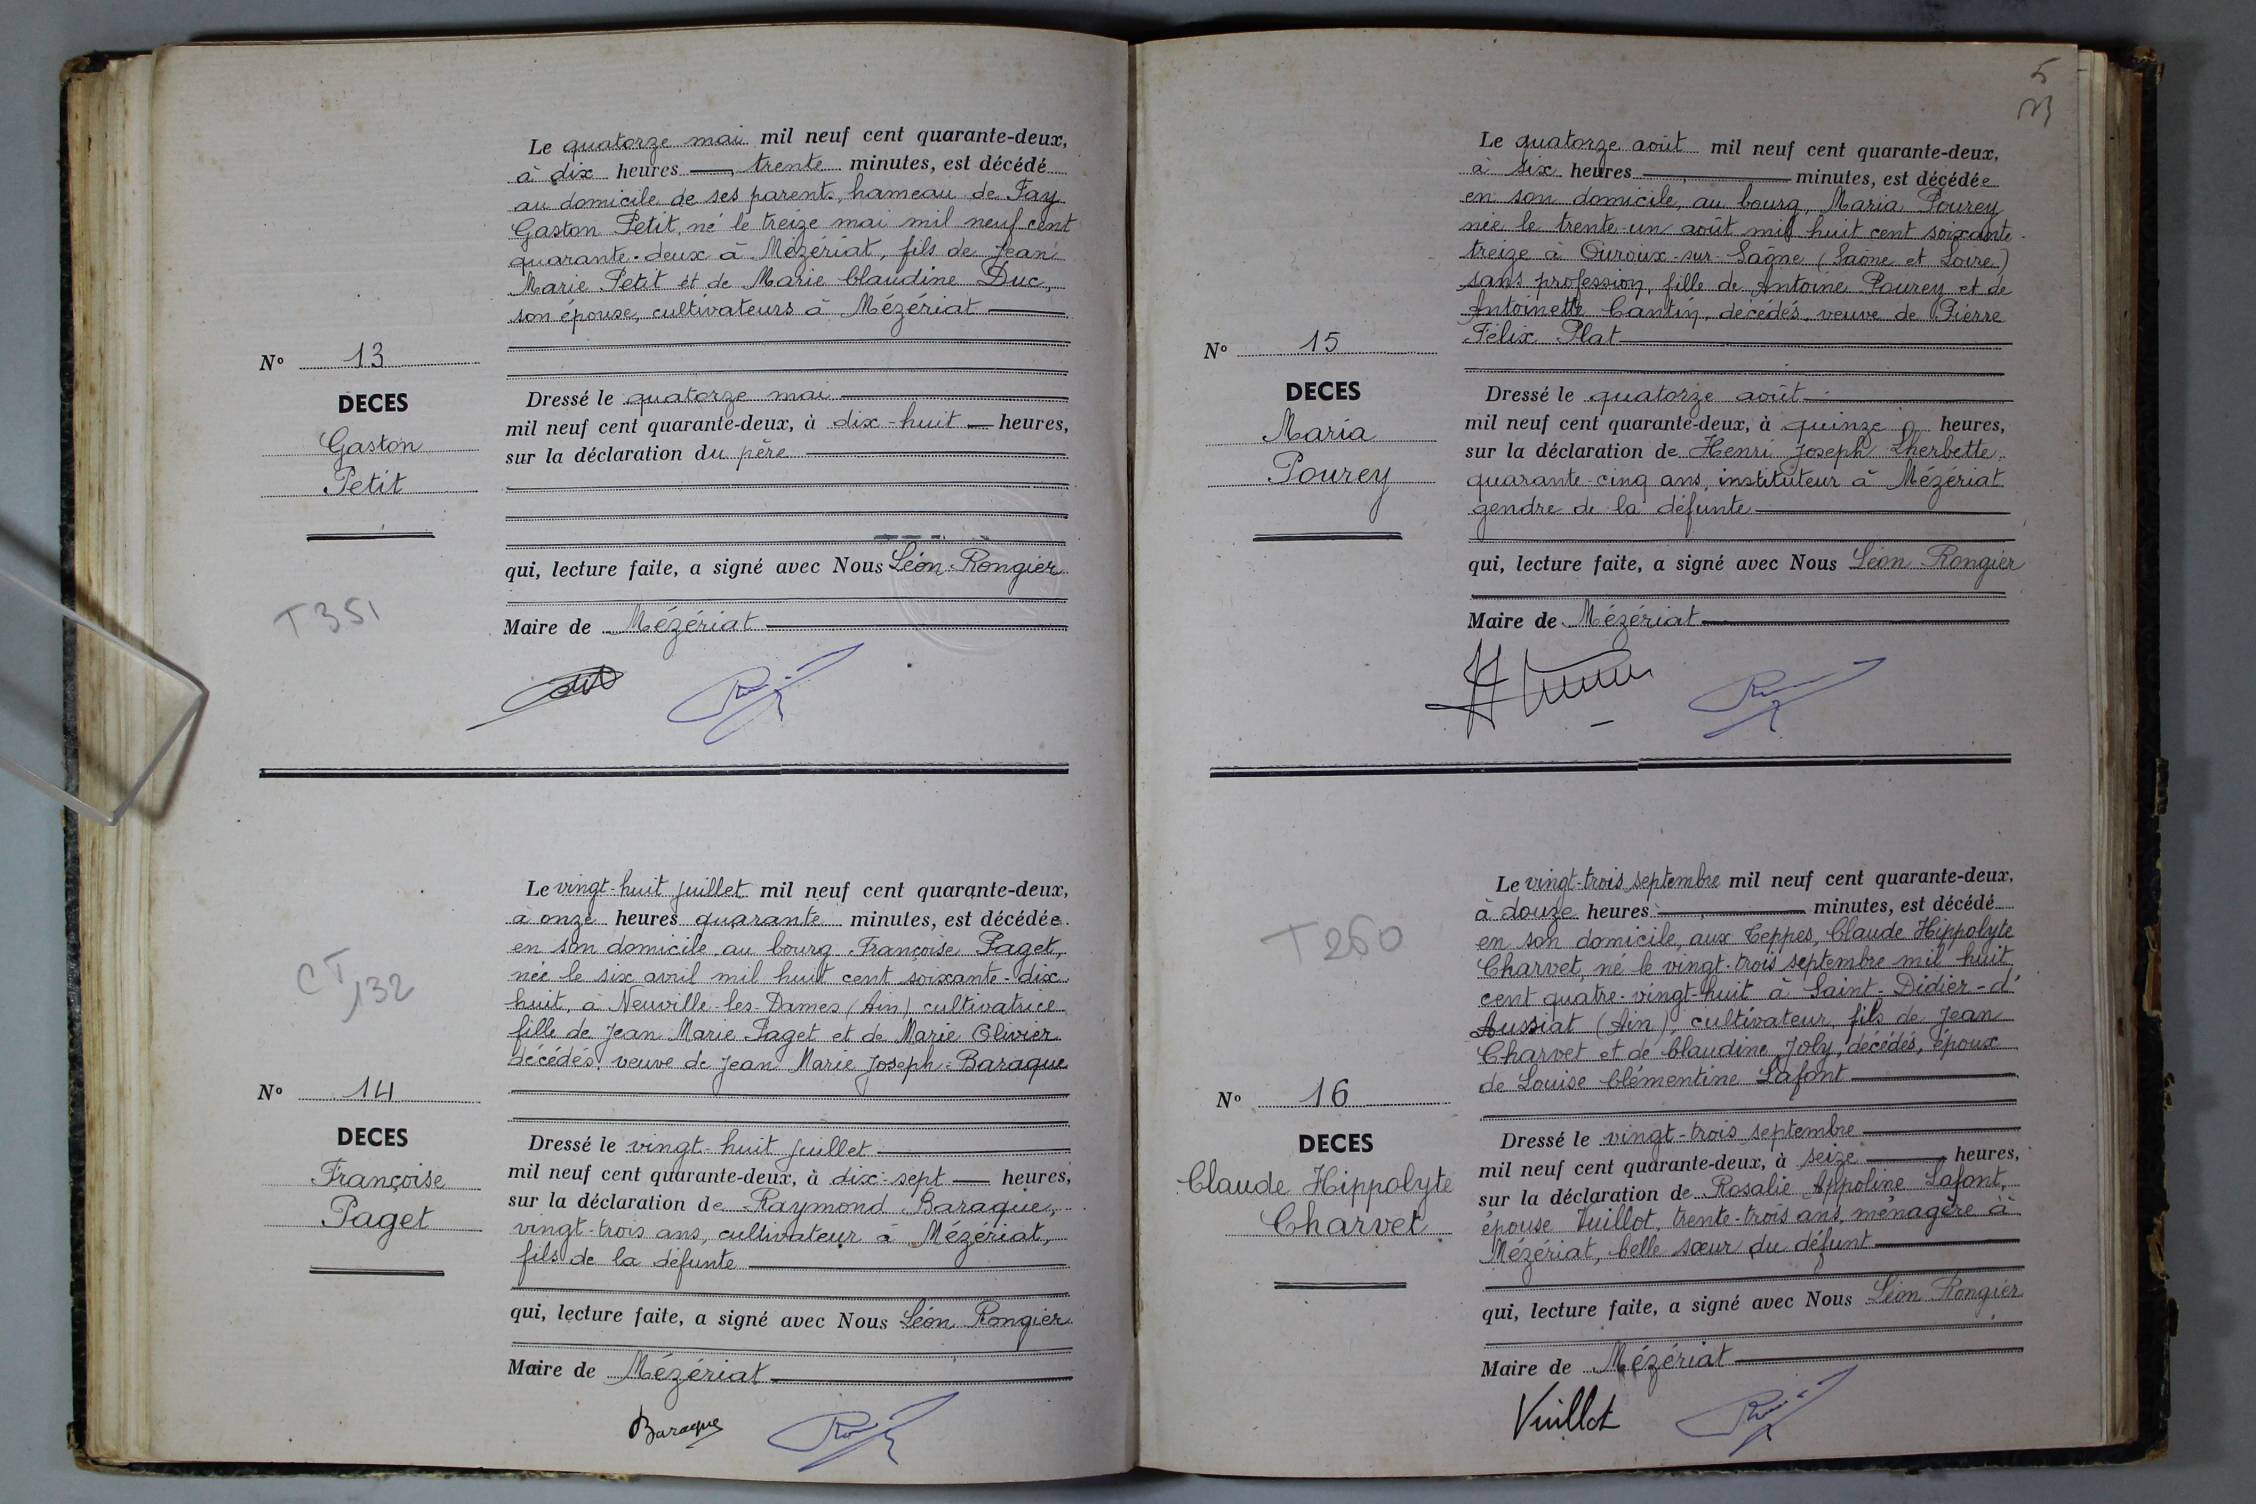 Le quatorze mai mil neuf cent quarante-deux,
à dix heures trente minutes, est décédé
au domicile de ses parents, hameau de Fay
Gaston Petit, né le treize mai mil neuf cent
quarante-deux à Mézériat, fils de Jean
Marie Petit et de Marie Claudine Duc,
son épouse, cultivateurs à Mézériat
N° 13
DECES
Gaston
Petit
Dressé le quatorze mai
mil neuf cent quarante-deux, à dix-huit heures,
sur la déclaration du père
qui, lecture faite, a signé avec Nous Léon Rongier
T 351
Maire de Mézériat
Le vingt-huit juillet mil neuf cent quarante-deux,
à onze heures quarante minutes, est décédée
en son domicile au bourg Françoise Paget,
née le six avril mil huit cent soixante-dix
huit, à Neuville-les-Dames (Ain) cultivatrice
fille de Jean Marie Paget et de Marie Olivier
décédés, veuve de Jean Marie Joseph Baraque
CT 132
N° 14
DECES
Françoise
Paget
Dressé le vingt-huit juillet
mil neuf cent quarante-deux, à dix-sept heures,
sur la déclaration de Raymond Baraque,
vingt-trois ans, cultivateur à Mézériat,
fils de la défunte
qui, lecture faite, a signé avec Nous Léon Rongier
Maire de Mézériat
Baraque
5
Le quatorze août mil neuf cent quarante-deux,
à six heures minutes, est décédée
en son domicile, au bourg, Maria Pourey
née le trente-un août mil huit cent soixante
treize à Ouroux-sur-Saône (Saône et Loire)
sans profession, fille de Antoine Pourey et de
Antoinette Cantin, décédés, veuve de Pierre
Félix Plat
N° 15
DECES
Maria
Pourey
Dressé le quatorze août
mil neuf cent quarante-deux, à quinze heures,
sur la déclaration de Henri Joseph Lherbette
quarante-cinq ans, instituteur à Mézériat
gendre de la défunte
qui, lecture faite, a signé avec Nous Léon Rongier
Maire de Mézériat
Le vingt-trois septembre mil neuf cent quarante-deux,
à douze heures minutes, est décédé
en son domicile, aux Teppes, Claude Hippolyte
Charvet, né le vingt-trois septembre mil huit
cent quatre-vingt-huit à Saint-Didier-d'
Aussiat (Ain), cultivateur, fils de Jean
Charvet et de Claudine Joly, décédés, époux
de Louise Clémentine Lafont
T 260
N° 16
DECES
Claude Hippolyte
Charvet
Dressé le vingt-trois septembre
mil neuf cent quarante-deux, à seize heures,
sur la déclaration de Rosalie Appoline Lafont,
épouse Vuillot, trente-trois ans, ménagère à
Mézériat, belle sœur du défunt
qui, lecture faite, a signé avec Nous Léon Rongier
Maire de Mézériat
Vuillot